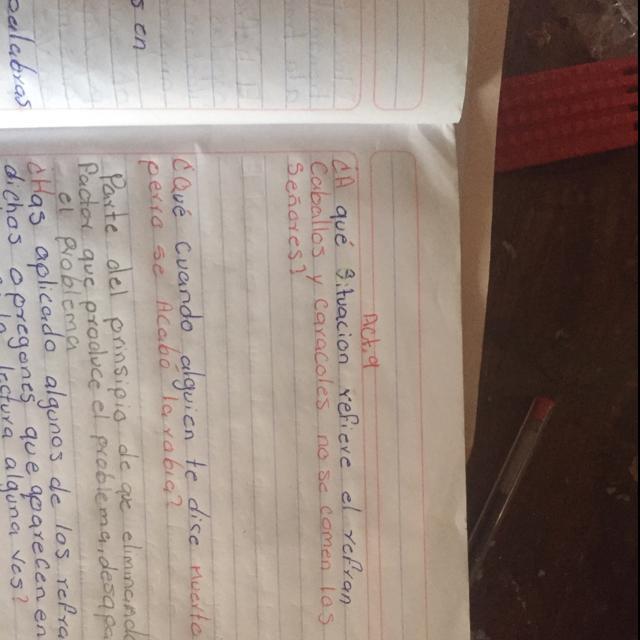 s en
palabras
Act 9
¿A qué situacion refieve el refran
Caballos y caracoles no se comen los
Señores?
¿Qué cuando alguien te dice muerto
perro se Acabó la rabia?
Parte del prinsipio de qe eliminando
que produce el problema, desapa
el problema
¿Has aplicado algunos de los refra
dichos o pregones que aparecen en
la lectura alguna ves?